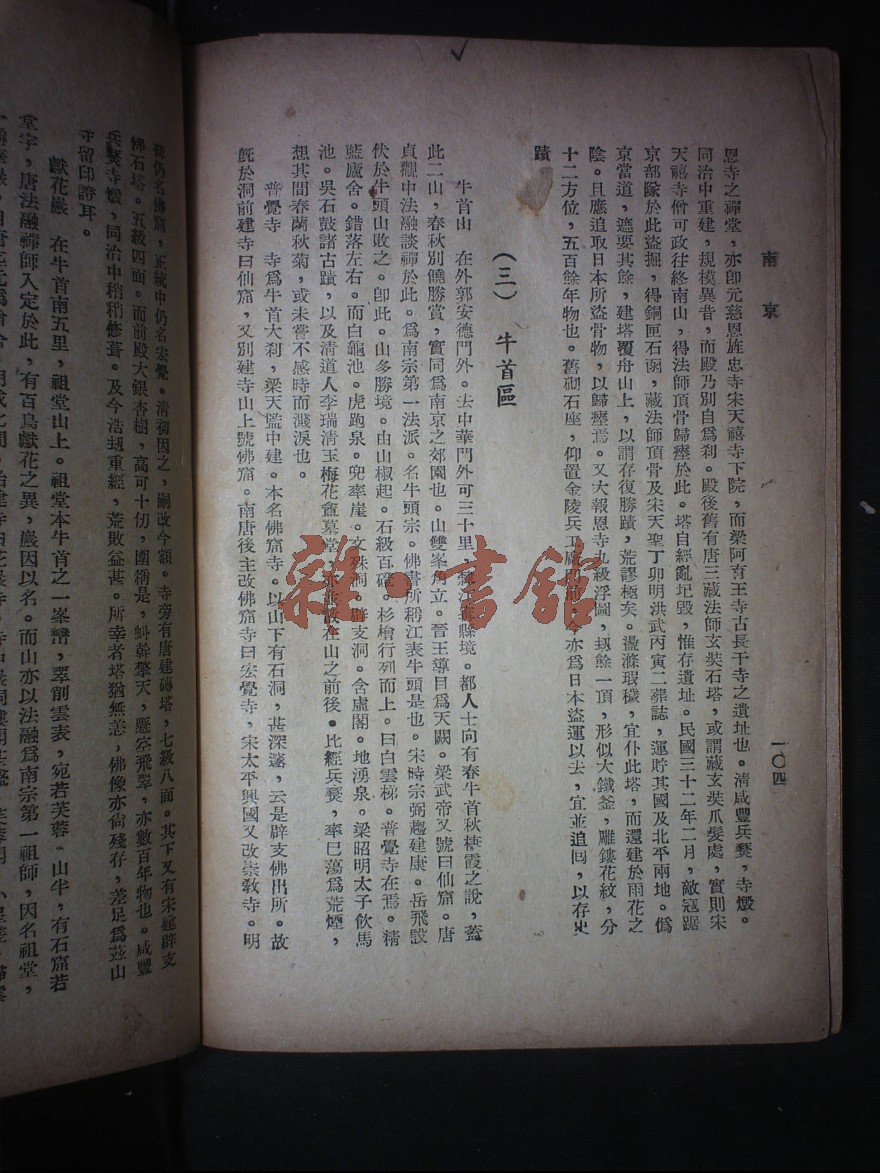 南京
一〇四
恩寺之禪堂，亦卽元慈恩旌忠寺宋天禧寺下院，而梁阿育王寺古長干寺之遺址也。清咸豐兵燹，寺燬。
同治中重建，規模異昔，而殿乃別自爲刹。殿後舊有唐三藏法師玄奘石塔，或謂藏玄奘爪髮處，實則宋
天禧寺僧可政往終南山，得法師頂骨歸瘞於此。塔自經亂圮毀，惟存遺址。民國三十二年二月，敵寇踞
京部隊於此盜掘，得銅匣石函，藏法師頂骨及宋天聖丁卯明洪武丙寅二葬誌，運貯其國及北平兩地。僞
京當道，遮要其餘，建塔覆舟山上，以謂存復勝蹟，荒謬極矣。盪滌瑕穢，宜仆此塔，而還建於雨花之
陰。且應追取日本所盜骨物，以歸瘞焉。又大報恩寺九級浮圖，刼餘一頂，形似大鐵釜，雕鏤花紋，分
十二方位，五百餘年物也。舊砌石座，仰置金陵兵工廠門前，今亦爲日本盜運以去，宜並追回，以存史
蹟
（三） 牛首區
牛首山 在外郭安德門外。去中華門外可三十里，江寧縣境。都人士向有春牛首秋棲霞之說，蓋
此二山，春秋別饒勝賞，實同爲南京之郊園也。山雙峯角立。晉王導目爲天闕。梁武帝又號曰仙窟。唐
貞觀中法融談禪於此。爲南宗第一法派。名牛頭宗。佛書所稱江表牛頭是也。宋時宗弼趨建康。岳飛設
伏於牛頭山敗之。卽此。山多勝境。由山椒起。石級百磴。杉檜行列而上。曰白雲梯。普覺寺在焉。精
藍廬舍。錯落左右。而白龜池。虎跑泉。兜率崖。文殊洞。辟支洞。含虛閣。地湧泉。梁昭明太子飲馬
池。吳石鼓諸古蹟，以及清道人李瑞清玉梅花盦墓堂，亦並散在山之前後。比經兵燹，率已蕩爲荒煙，
想其間春蘭秋菊，或未嘗不感時而濺淚也。
普覺寺 寺爲牛首大刹，梁天監中建。本名佛窟寺。以山下有石洞，甚深邃，云是辟支佛出所。故
旣於洞前建寺曰仙窟，又別建寺山上號佛窟。南唐後主改佛窟寺曰宏覺寺，宋太平興國又改崇敎寺。明
初仍名佛窟，正統中仍名宏覺。清初因之，嗣改今額。寺旁有唐建磚塔，七級八面。其下又有宋建辟支
佛石塔。五級四面。而前殿大銀杏樹，高可十仞，圍稱是，蚪幹擎天，懸空飛翠，亦數百年物也。咸豐
兵燹寺燬，同治中稍稍修葺。及今浩刼重經，荒敗益甚。所幸者塔猶無恙，佛像亦尙殘存，差足爲茲山
寺留印證耳。
獻花巖 在牛首南五里，祖堂山上。祖堂本牛首之一峯巒，翠削雲表，宛若芙蓉。山半，有石窟若
堂宇，唐法融禪師入定於此，有百鳥獻花之異，巖因以名。而山亦以法融爲南宗第一祖師，因名祖堂，
雜·書館